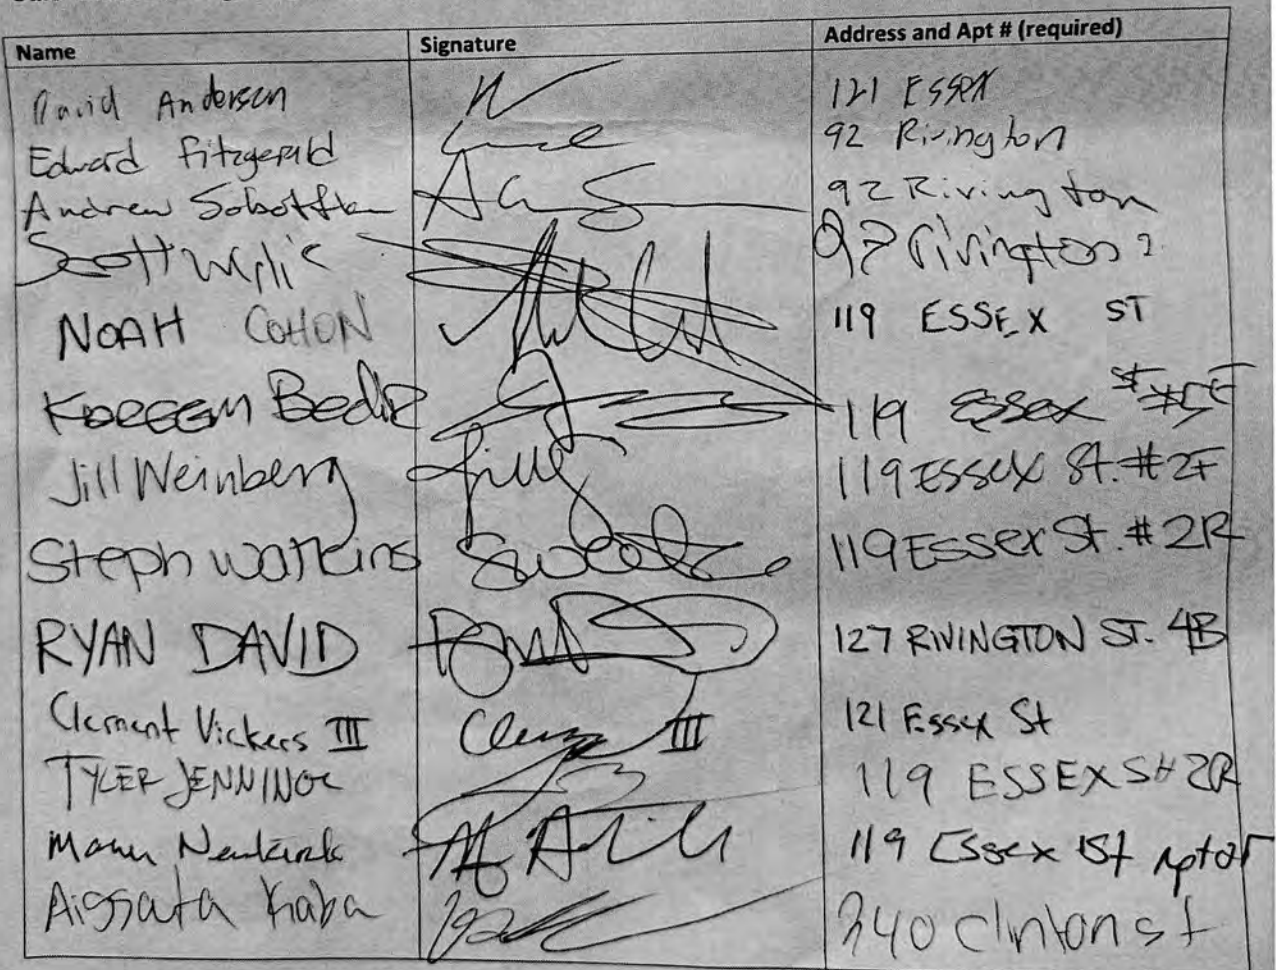 Name Signature Address and Apt # (required)
David Andersen 121 Essex
Edward Fitzgerald 92 Rivington
Andrew Sobottka 92 Rivington
Scott Wylie 92 Rivington 2
NOAH COHON 119 ESSEX ST
Kareem Bedir 119 Essex St
Jill Weinberg Jill 119 Essex St. #2F
Steph Watkins 119 Essex St. #2R
RYAN DAVID 127 RIVINGTON ST. 4B
Clement Vickers III III 121 Essex St
TYLER JENNINGS 119 ESSEX St 2R
119 Essex St
Aissata Kaba 340 Clinton st